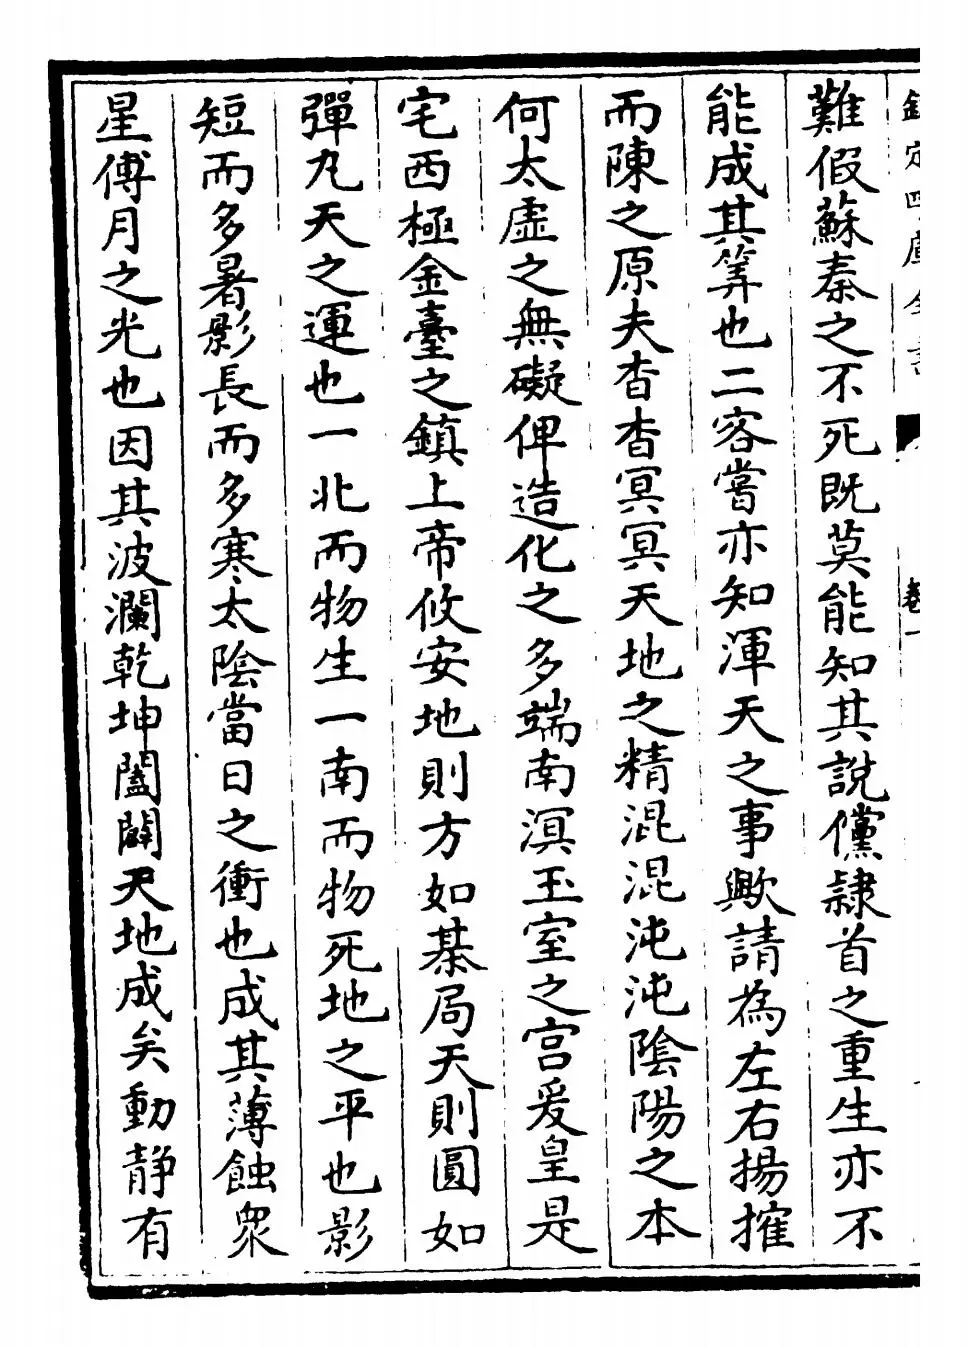 欽定四庫全書
卷一
難假蘇秦之不死既莫能知其說儻隷首之重生亦不
能成其筭也二客嘗亦知渾天之事歟請為左右揚搉
而陳之原夫杳杳冥冥天地之精混混沌沌隂陽之本
何太虛之無礙俾造化之多端南溟玉室之宫爰皇是
宅西極金臺之鎮上帝攸安地則方如棊局天則圓如
彈丸天之運也一北而物生一南而物死地之平也影
短而多暑影長而多寒太隂當日之衝也成其薄蝕衆
星傅月之光也因其波瀾乾坤闔闢天地成矣動靜有